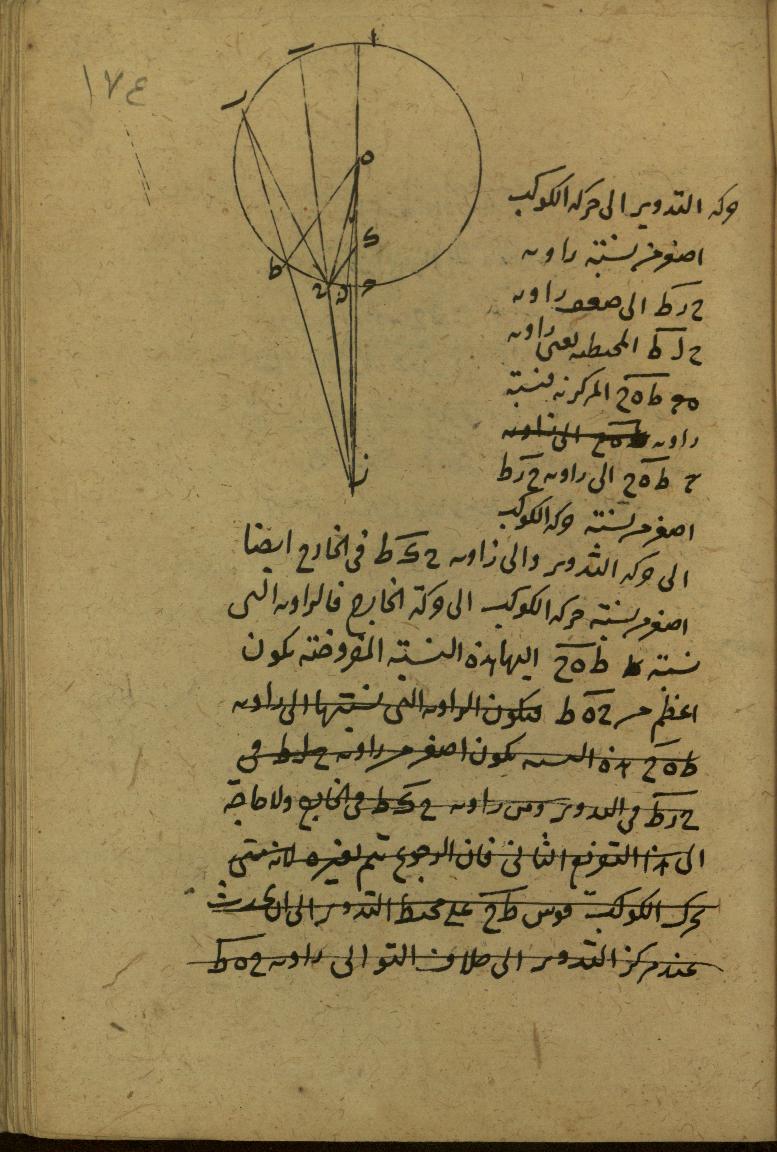 ١٧٤
ا
ب
ر
ه
ط
ح
د
ج
ز
حركه التدوير الى حركه الكوكب
اصغر من نسبة زاويه
ح ر ط الى ضعف زاويه
ح ر ط المحيطيه يعنى زاويه
ط ه ح المركزيه فنسبة
زاويه ط ه ح الى زاويه
ط ه ح الى زاويه ح ر ط
اصغر من نسبة حركه الكوكب
الى حركه التدوير والى زاويه ح ك ط فى الخارج ايضا
اصغر من نسبة حركه الكوكب الى حركة الخارج فالزاويه التى
نسبة ط ه ح اليها هذه النسبة المفروضة يكون
اعظم من ح ه ط فيكون الزاويه التى نسبتها الى زاويه
ط ه ح هذه النسبه يكون اصغر من زاويه ح ر ط فى
ح ر ط فى التدوير ومن زاويه ح ك ط فى الخارج ولا حاجة
الى هذا التفريع الثانى فان الرجوع يتم بغيره لانه متى
تحرك الكوكب قوس ط ح على محيط التدوير الى ان يحدث
عند مركز التدوير الى خلاف التوالى زاويه ح ه ط